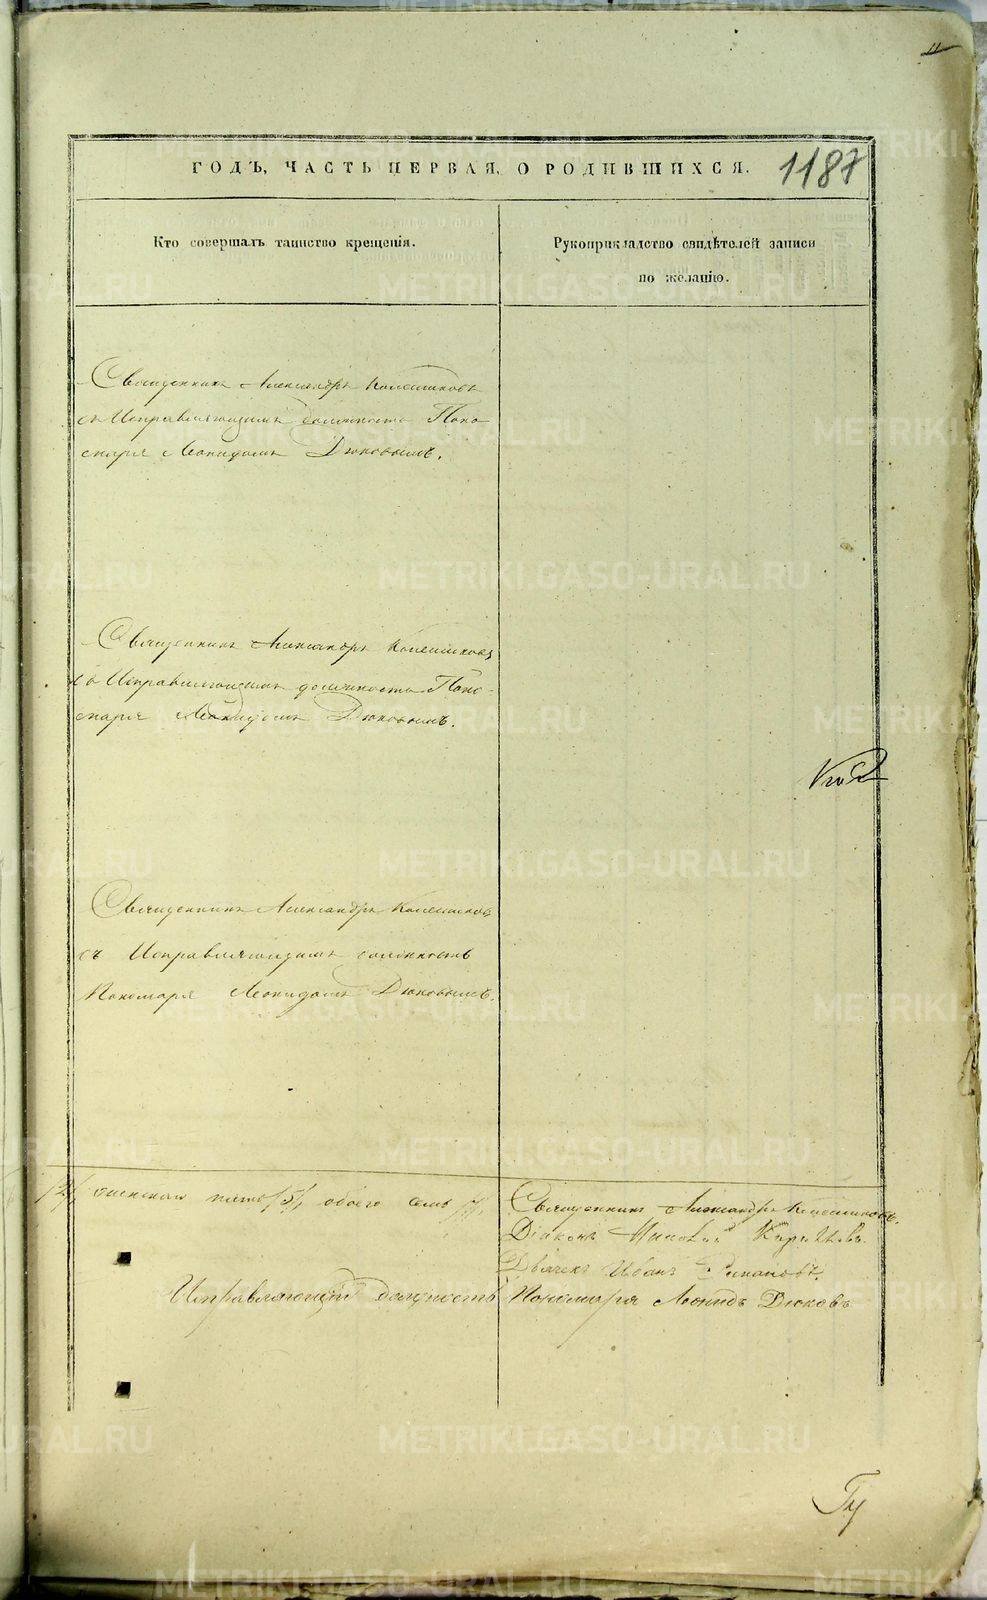 11
ГОДЪ, ЧАСТЬ ПЕРВАЯ, О РОДИВШИХСЯ.
1187
Кто совершалъ таинство крещенія.
Рукоприкладство свидѣтелей записи
по желанію.
Священникъ Александръ Колесниковъ
съ Исправляющимъ должность Поно
маря Леонидомъ Дюковымъ.
Священникъ Александръ Колесниковъ
съ Исправляющимъ должность Поно-
маря Леонидомъ Дюковымъ.
Священникъ Александръ Колесниковъ
съ Исправляющимъ должность
Пономаря Леонидомъ Дюковымъ.
/2/ женскаго пять /5/, обоего семь /7/.
Священникъ Александръ Колесниковъ.
Діаконъ
Дьячекъ Иванъ
Исправляющій должность Пономаря Леонидъ Дюковъ
METRIKI.GASO-URAL.RU